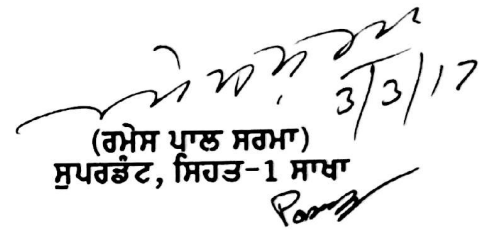 3/3/17
(ਰਮੇਸ ਪਾਲ ਸਰਮਾ)
ਸੁਪਰਡੰਟ, ਸਿਹਤ-1 ਸਾਖਾ